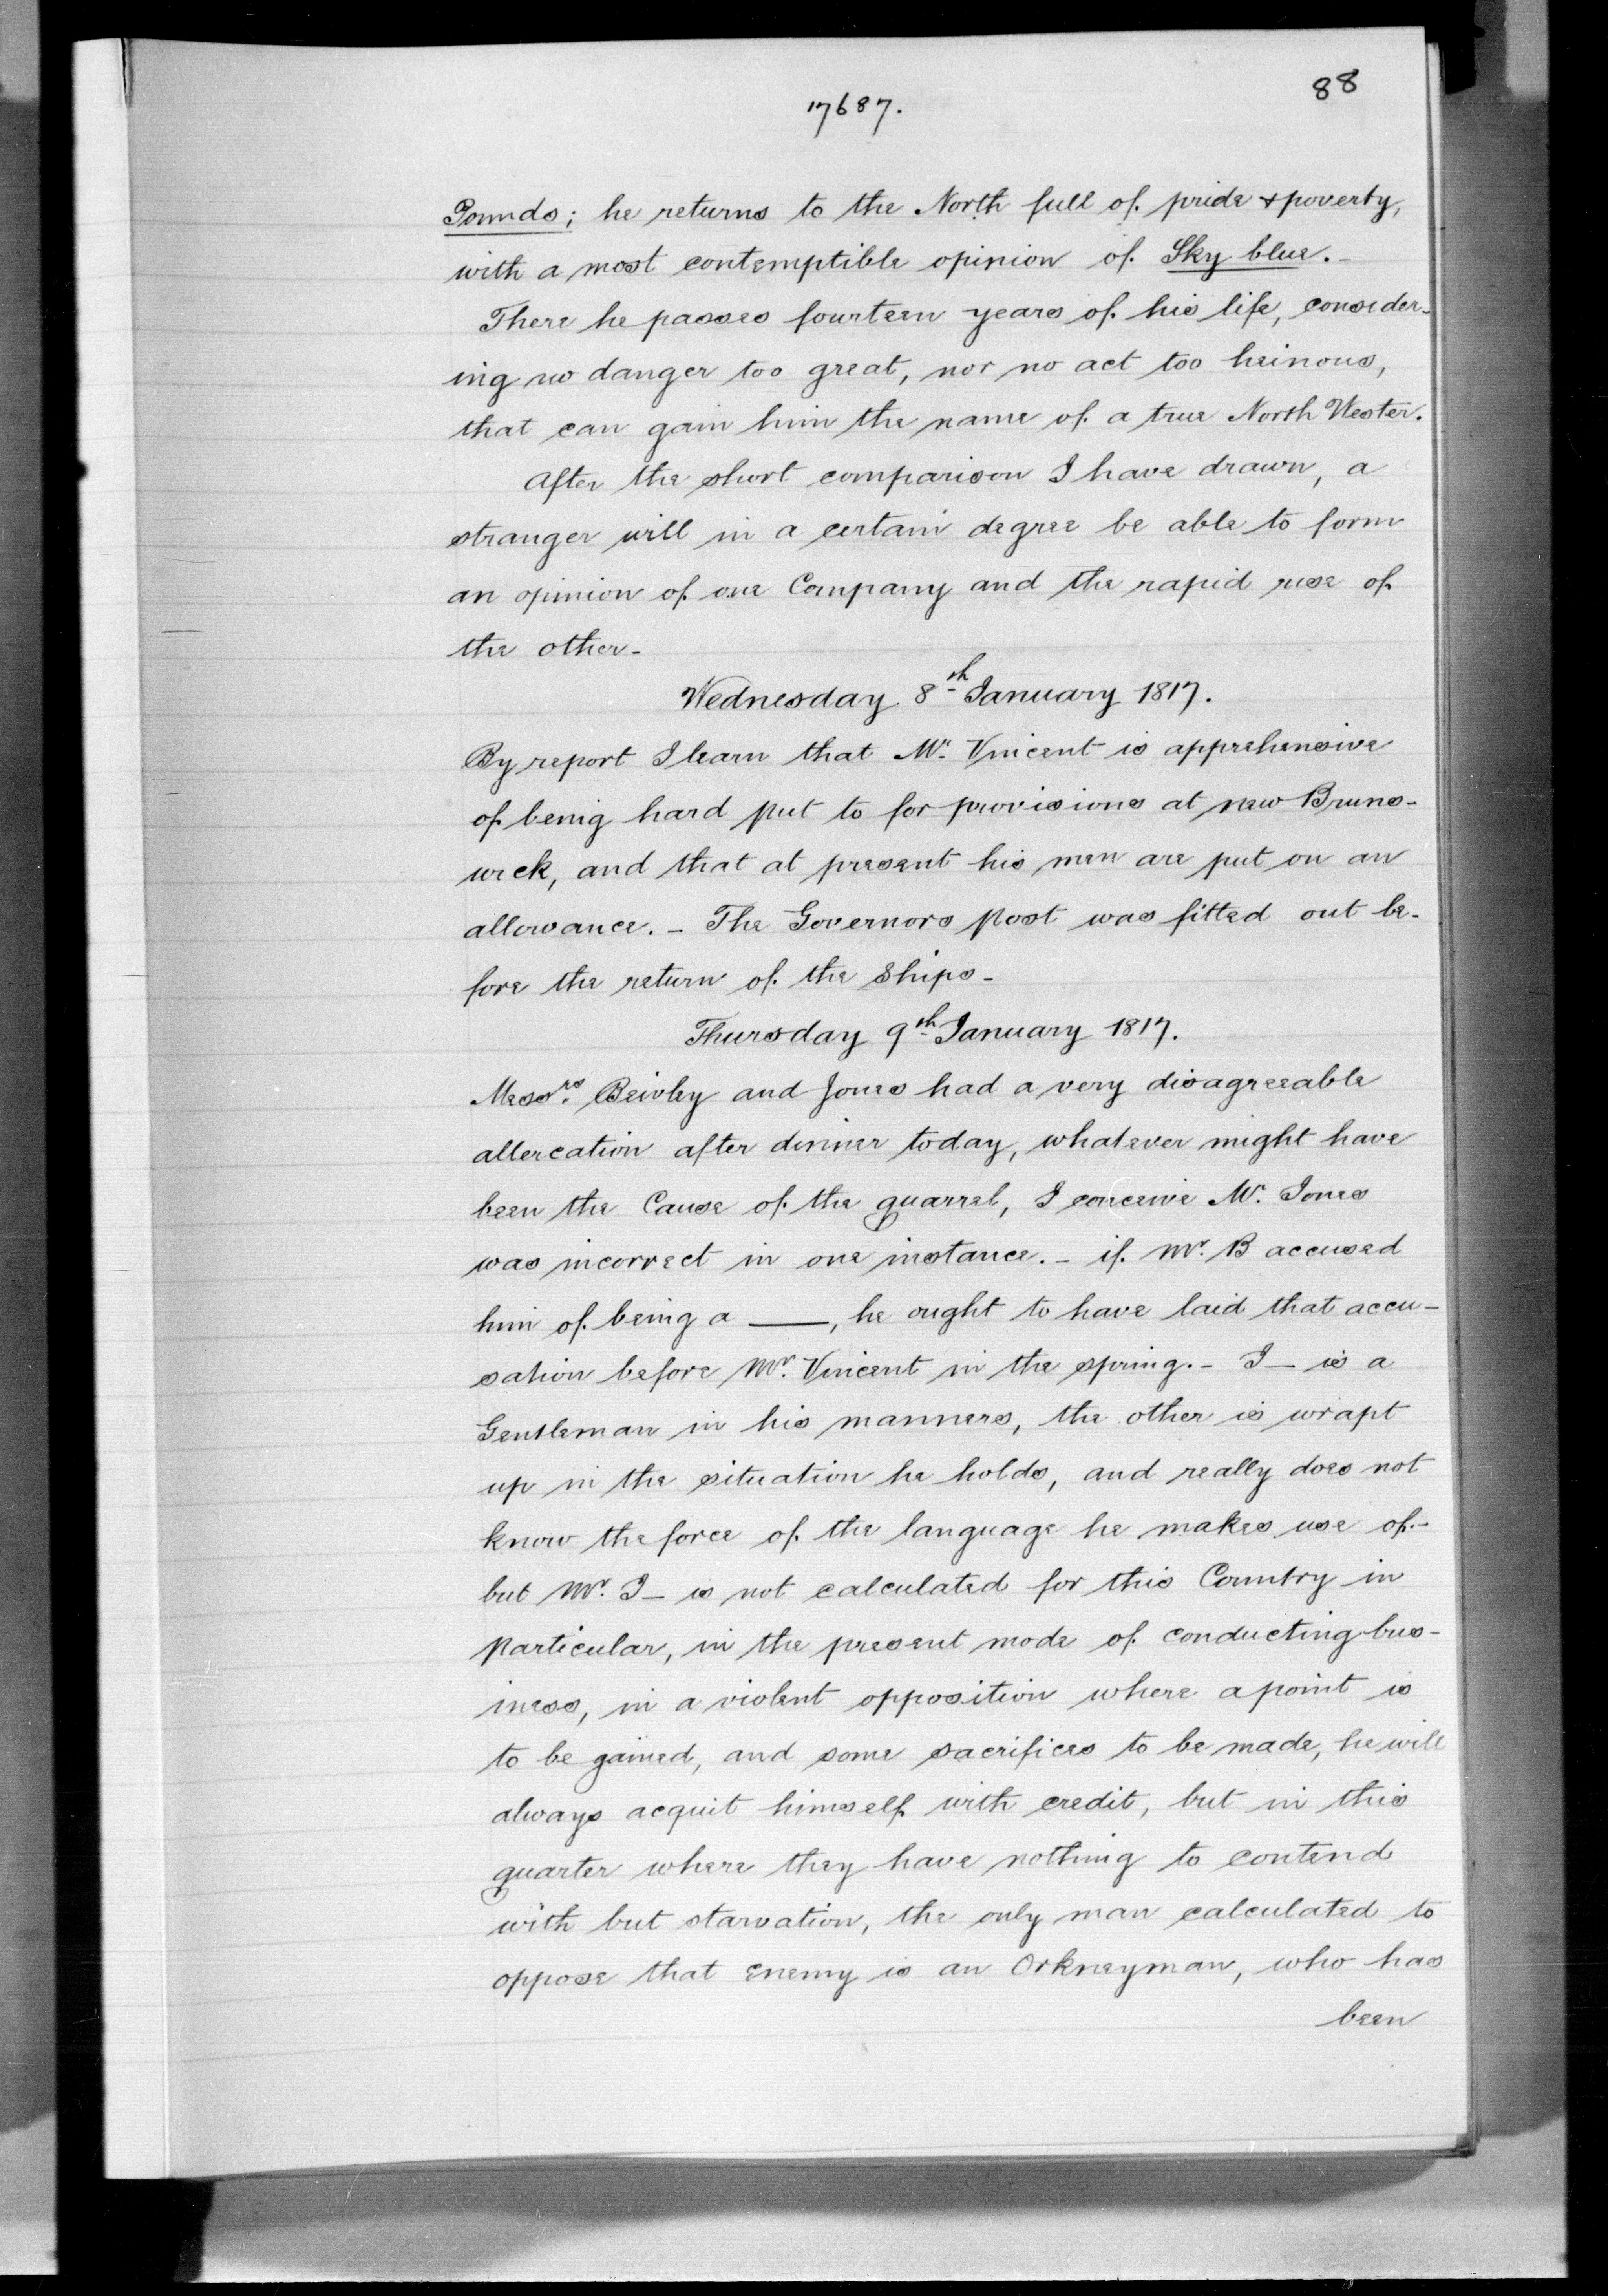 88
17687.
Pounds; he returns to the North full of pride & poverty,
with a most contemptible opinion of Sky blue. -
There he passes fourteen years of his life, consider-
ing no danger too great, nor no act too heinous,
that can gain him the name of a true North Wester.
After the short comparison I have drawn, a
stranger will in a certain degree be able to form
an opinion of one Company and the rapid rise of
the other -
Wednesday 8th January 1817.
By report I learn that Mr. Vincent is apprehensive
of being hard put to for provisions at new Bruns-
wick, and that at present his men are put on an
allowance. - The Governors post was fitted out be-
fore the return of the Ships -
Thursday 9th January 1817.
Messrs. Beioley and Jones had a very disagreeable
altercation after dinner today, whatever might have
been the Cause of the quarrel, I conceive Mr. Jones
was incorrect in one instance. - if Mr. B accused
him of being a ——, he ought to have laid that accu-
sation before Mr. Vincent in the spring. - J— is a
Gentleman in his manners, the other is wrapt
up in the situation he holds, and really does not
know the force of the language he makes use of -
but Mr. J— is not calculated for this Country in
particular, in the present mode of conducting bus-
iness, in a violent opposition where a point is
to be gained, and some sacrifices to be made, he will
always acquit himself with credit, but in this
quarter where they have nothing to contend
with but starvation, the only man calculated to
oppose that enemy is an Orkneyman, who has
been